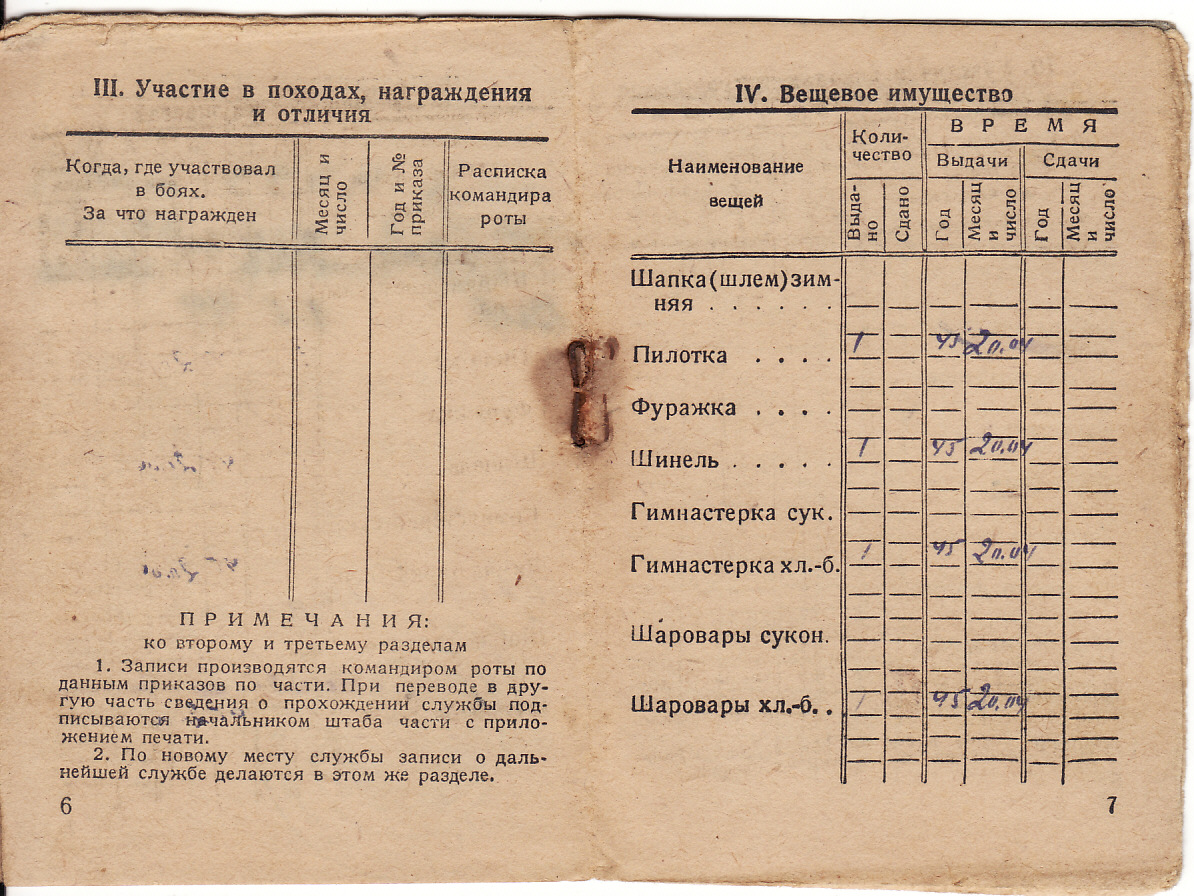 III. Участие в походах, награждения
и отличия
Когда, где участвовал
в боях.
За что награжден
Месяц и
число
Год и №
приказа
Расписка
командира
роты
ПРИМЕЧАНИЯ:
ко второму и третьему разделам
1. Записи производятся командиром роты по
данным приказов по части. При переводе в дру-
гую часть сведения о прохождении службы под-
писываются начальником штаба части с прило-
жением печати.
2. По новому месту службы записи о даль-
нейшей службе делаются в этом же разделе.
6
IV. Вещевое имущество
Наименование
вещей
Коли-
чество
ВРЕМЯ
Выдачи
Сдачи
Выда-
но
Сдано
Год
Месяц
и
число
Год
Месяц
и
число
Шапка(шлем)зим-
няя . . . . . .
Пилотка . . . . 1 45 20.04
Фуражка . . . .
Шинель . . . . . 1 45 20.04
Гимнастерка сук.
Гимнастерка хл.-б. 1 45 20.04
Шаровары сукон.
Шаровары хл.-б. . 1 45 20.04
7